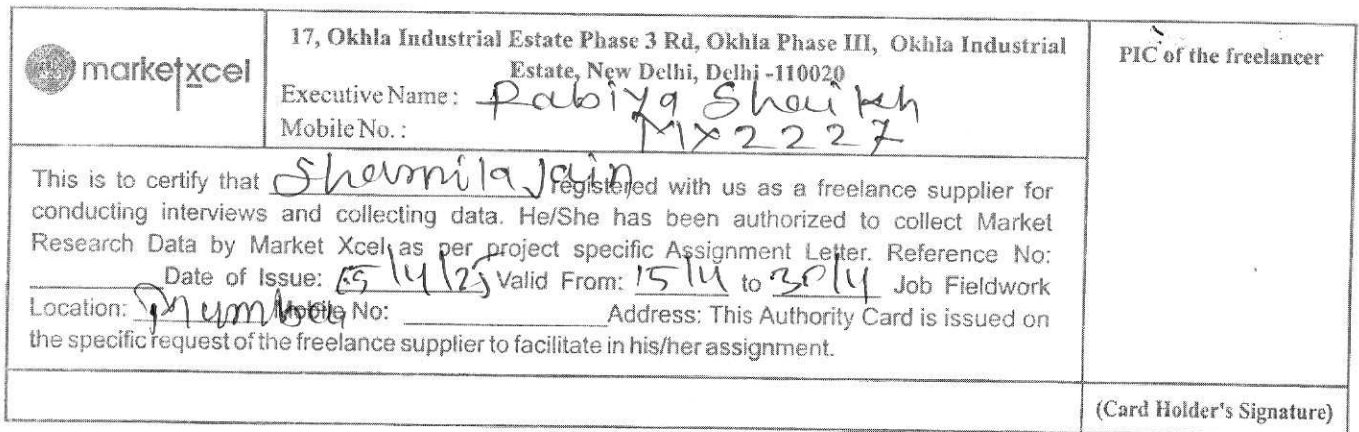 marketxcel
17, Okhla Industrial Estate Phase 3 Rd, Okhla Phase III, Okhla Industrial
Estate, New Delhi, Delhi -110020
Executive Name: Rabiya Shaikh
Mobile No.: MX2227
PIC of the freelancer
This is to certify that Sharmila Jain registered with us as a freelance supplier for
conducting interviews and collecting data. He/She has been authorized to collect Market
Research Data by Market Xcel as per project specific Assignment Letter. Reference No:
Date of Issue: 15/4/25 Valid From: 15/4 to 30/4 Job Fieldwork
Location: Mumbai Mobile No: Address: This Authority Card is issued on
the specific request of the freelance supplier to facilitate in his/her assignment.
(Card Holder's Signature)